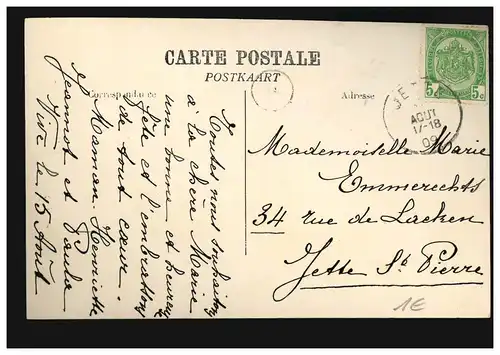 CARTE POSTALE
POSTKAART
Correspondance
Adresse
5c 5c
AOUT
17-18
09
Toutes nous souhaitons
à la chère Marie
une bonne et heureuse
fête et l'embrassons
de tout cœur.
Maman Henriette
Jeannot et Paula
Vive le 15 Août
Mademoiselle Marie
Emmerechts
34 rue de Laeken
Jette St Pierre
1€